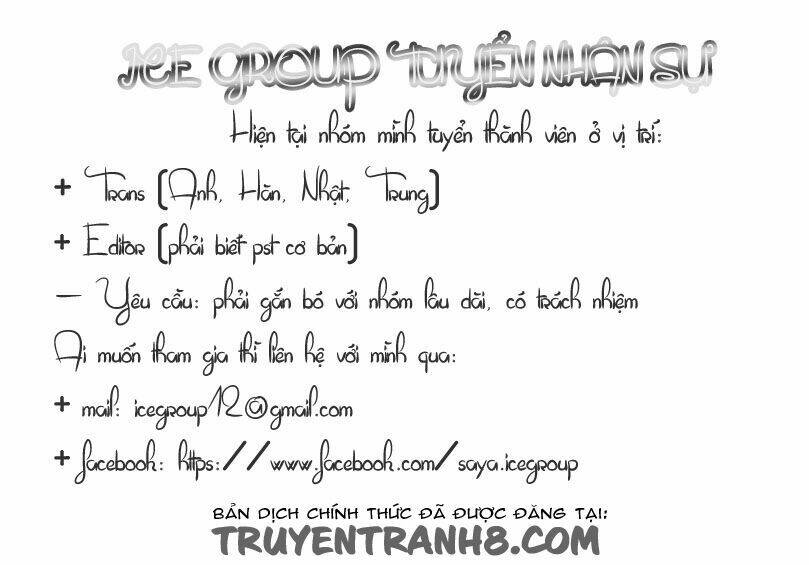 ICE GROUP TUYỂN NHÂN SỰ
Hiện tại nhóm mình tuyển thành viên ở vị trí:
+ Trans (Anh, Hàn, Nhật, Trung)
+ Editor (phải biết pst cơ bản)
- Yêu cầu: phải gắn bó với nhóm lâu dài, có trách nhiệm
Ai muốn tham gia thì liên hệ với mình qua:
+ mail: icegroup12@gmail.com
+ facebook: https://www.facebook.com/saya.icegroup
BẢN DỊCH CHÍNH THỨC ĐÃ ĐƯỢC ĐĂNG TẠI:
TRUYENTRANH8.COM